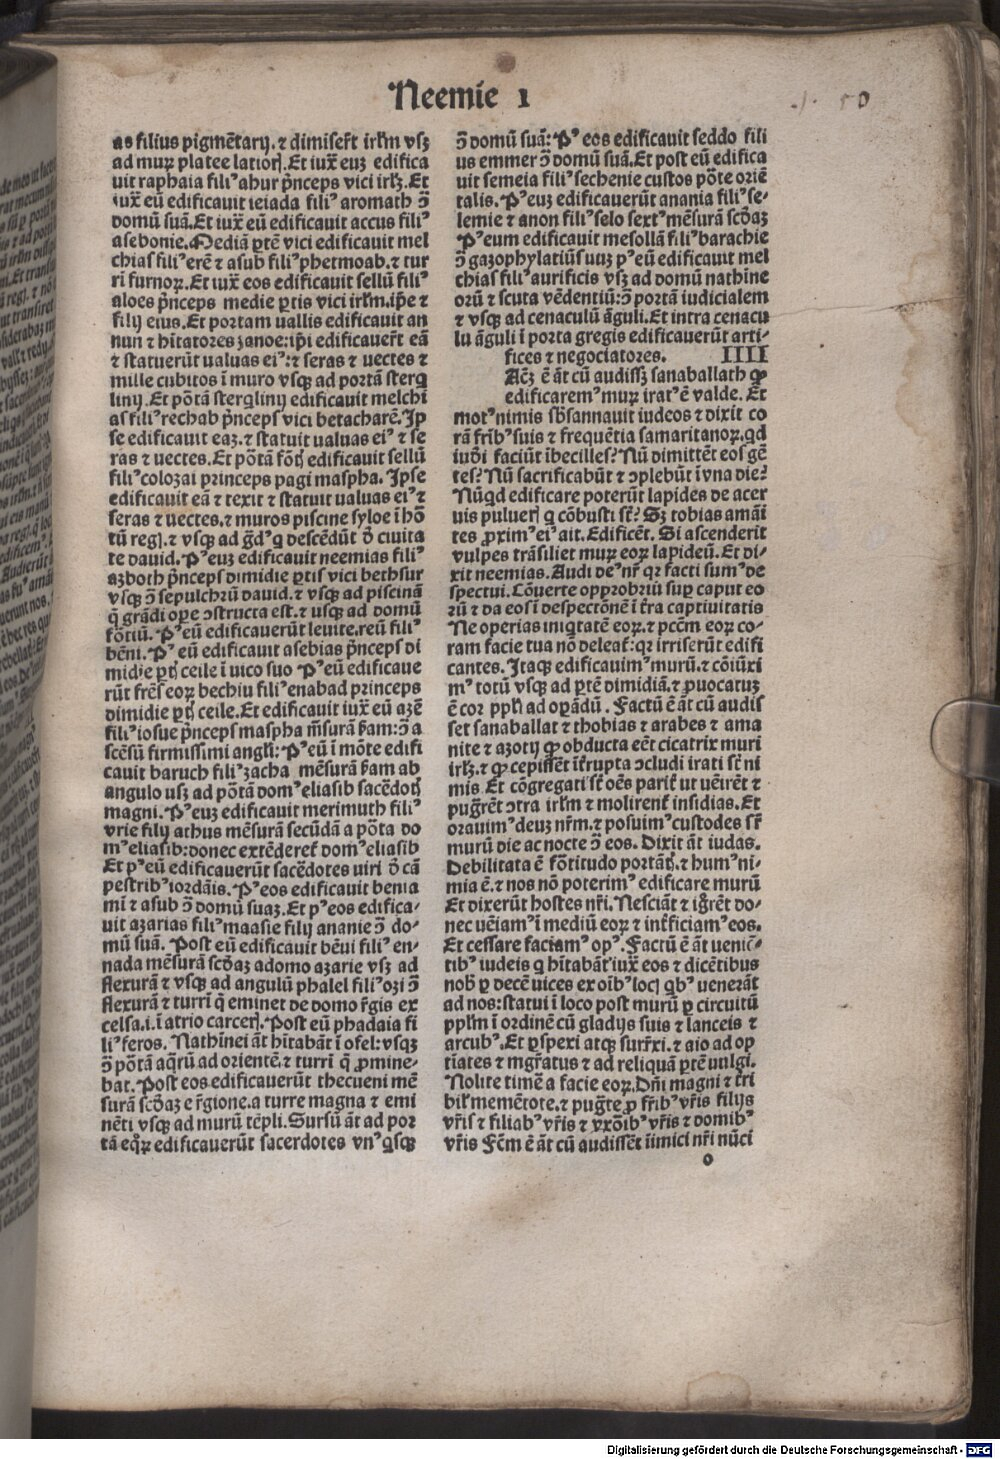 Neemie 1
as filius pigmētarij. ⁊ dimiser̄t irl̄m vsꝫ
ad murꝫ platee latiorꝭ. Et iux̄ euꝫ edifica
uit raphaia fili⁹ ahur p̄nceps vici irl̄ꝫ. Et
iux̄ eū edificauit ieiada fili⁹ aromath ↄ̄
domū suā. Et iux̄ eū edificauit accus fili⁹
asebonie. Mediā ꝑtē vici edificauit mel
chias fili⁹ erē ⁊ asub fili⁹ phetmoab. ⁊ tur
rī furnoꝝ. Et iux̄ eos edificauit sellū fili⁹
aloes p̄nceps medie ꝑtis vici irl̄m. ip̄e ⁊
filij eius. Et portam uallis edificauit an
nun ⁊ hītatores zanoe: ip̄i edificauer̄t eā
⁊ statuerūt ualuas ei⁹: ⁊ seras ⁊ uectes ⁊
mille cubitos ī muro vsqꝫ ad portā sterq
linij. Et pōtā sterqlinij edificauit melchi
as fili⁹ rechab p̄nceps vici betacharē. Ip
se edificauit eaꝫ. ⁊ statuit ualuas ei⁹ ⁊ se
ras ⁊ uectes. Et pōtā fōtꝭ edificauit sellū
fili⁹ colozai princeps pagi maspha. Ipse
edificauit eā ⁊ texit ⁊ statuit ualuas ei⁹ ⁊
seras ⁊ uectes. ⁊ muros piscine syloe ī hō
tū regꝭ. ⁊ vsqꝫ ad gd̄⁹ q descēdūt ꝺ̄ ciuita
te dauid. P⁹ euꝫ edificauit neemias fili⁹
azboth p̄nceps dimidie ꝑtis vici bethsur
vsqꝫ ↄ̄ sepulchrū dauid. ⁊ vsqꝫ ad piscinā
q̄ grādi oꝑe ↄstructa est. ⁊ usqꝫ ad domū
fōtiū. P⁹ eū edificauerūt leuite. reū fili⁹
bēni. P⁹ eū edificauit asebias p̄nceps di
midie ꝑtꝭ ceile ī uico suo P⁹ eū edificaue
rūt frēs eoꝝ bechiu fili⁹ enabad princeps
dimidie ꝑtꝭ ceile. Et edificauit iux̄ eū azē
fili⁹ iosue p̄nceps maspha m̄surā ẜam: ↄ̄ a
scēsū firmissimi angl̄i: P⁹ eū ī mōte edifi
cauit baruch fili⁹ zacha mēsurā ẜam ab
angulo usꝫ ad pōtā dom⁹ eliasib sacēdotꝭ
magni. P⁹ euꝫ edificauit merimuth fili⁹
vrie filij athus mēsurā secūdā a pōta do
m⁹ eliasib: donec extēderet̄ dom⁹ eliasib
Et p⁹ eū edificauerūt sacēdotes uiri ꝺ̄ cā
pestrib⁹ iordāis. P⁹ eos edificauit benia
mī ⁊ asub ↄ̄ domū suaꝫ. Et p⁹ eos edifica⸗
uit azarias fili⁹ maasie filij ananie ↄ̄ do⸗
mū suā. Post eū edificauit bēui fili⁹ en⸗
nada mēsurā scd̄aꝫ adomo azarie vsꝫ ad
flexurā ⁊ vsqꝫ ad angulū phalel fili⁹ ozi ↄ̄
flexurā ⁊ turrī q̄ eminet de domo r̄gis ex
celsa. i. ī atrio carcerꝭ. Post eū phadaia fi
li⁹ feros. Nathinei āt hītabāt ī ofel: vsqꝫ
ↄ̄ pōtā aq̄rū ad orientē. ⁊ turrī q̄ ꝓmine⸗
bat. Post eos edificauerūt thecueni mē
surā scd̄aꝫ e r̄gione. a turre magna ⁊ emi
nēti vsqꝫ ad murū tēpli. Sursū āt ad por
tā eqꝝ edificauerūt sacerdotes vn⁹ qsqꝫ
ↄ̄ domū suā: P⁹ eos edificauit seddo fili
us emmer ↄ̄ domū suā. Et post eū edifica
uit semeia fili⁹ sechenie custos pōte oriē
talis. P⁹ euꝫ edificauerūt anania fili⁹ se⸗
lemie ⁊ anon fili⁹ selo sext⁹ mēsurā scd̄aꝫ
P⁹ eum edificauit mesollā fili⁹ barachie
ↄ̄ gazophylatiū suuꝫ p⁹ eū edificauit mel
chias fili⁹ aurificis vsꝫ ad domū nathīne
orū ⁊ scuta vēdentiū: ↄ̄ portā iudicialem
⁊ vsqꝫ ad cenaculū āguli. Et intra cenacu
lu āguli ī porta gregis edificauerūt arti⸗
fices ⁊ negociatores. IIII
Acꝫ ē āt cū audissꝫ sanaballath ꝙ
edificarem⁹ murꝫ irat⁹ ē valde. Et
mot⁹ nimis sb̄sannauit iudeos ⁊ dixit co
rā frīb⁹ suis ⁊ frequētia samaritanoꝝ. qd
iudi faciūt ībecilles? Nū dimittēt eos gē
tes? Nū sacrificabūt ⁊ ↄplebūt īvna die?
Nūqd edificare poterūt lapides de acer
uis pulueꝝ q cōbusti st̄? Sꝫ tobias amāi
tes ꝓxim⁹ ei⁹ ait. Edificēt. Si ascenderit
vulpes trāsiliet murꝫ eoꝝ lapideū. Et di⸗
xit neemias. Audi de⁹ nr̄ qꝛ facti sum⁹ de
spectui. Cōuerte opprobriū suꝑ caput eo
rū ⁊ da eos ī despectōnē ī t̄ra captiuitatis
Ne operias iniqtatē eoꝝ. ⁊ pccm̄ eoꝝ co⸗
ram facie tua nō deleat̄: qꝛ irriserūt edifi
cantes. Itaqꝫ edificauim⁹ murū. ⁊ cōiūxi
m⁹ totū vsqꝫ ad ꝑtē dimidiā. ⁊ ꝓuocatuꝫ
ē cor ppl̄i ad oꝑādū. Factū ē āt cū audis
set sanaballat ⁊ thobias ⁊ arabes ⁊ ama
nite ⁊ azotij ꝙ obducta eēt cicatrix muri
irl̄ꝫ. ⁊ ꝙ cepissēt īt̄rupta ↄcludi irati st̄ ni
mis. Et cōgregati st̄ oēs parit̄ ut ueīrēt ⁊
pugr̄ēt ↄtra irl̄m ⁊ molirent̄ insidias. Et
orauim⁹ deuꝫ nr̄m. ⁊ posuim⁹ custodes sr̄
murū die ac nocte ↄ̄ eos. Dixit āt iudas.
Debilitata ē fōtitudo portātꝭ. ⁊ hum⁹ ni⸗
mia ē. ⁊ nos nō poterim⁹ edificare murū
Et dixerūt hostes nr̄i. Nesciāt ⁊ igr̄ēt do⸗
nec uēiam⁹ ī mediū eoꝝ ⁊ int̄ficiam⁹ eos.
Et cessare faciam⁹ op⁹. Factū ē āt ueniē⸗
tib⁹ iudeis q hītabāt iux̄ eos ⁊ dicētibus
nob̄ ꝑ decē uices ex oīb⁹ locꝭ qb⁹ uenerāt
ad nos: statui ī loco post murū ꝑ circuitū
ppl̄m ī ordinē cū gladijs suis ⁊ lanceis ⁊
arcub⁹. Et ꝑspexi atqꝫ surr̄xi. ⁊ aio ad op
tīates ⁊ mgr̄atus ⁊ ad reliquā ꝑtē uulgi.
Nolite timē a facie eoꝝ. Dn̄i magni ⁊ t̄ri
bil̄ mementote. ⁊ pug̅te ꝓ fr̄ib⁹ vr̄is filijs
vr̄is ⁊ filiab⁹ vr̄is ⁊ vxōib⁹ vr̄is ⁊ domib⁹
vr̄is Fc̄m ē āt cū audissēt īimici nr̄i nūci
o
Digitalisierung gefördert durch die Deutsche Forschungsgemeinschaft - DFG